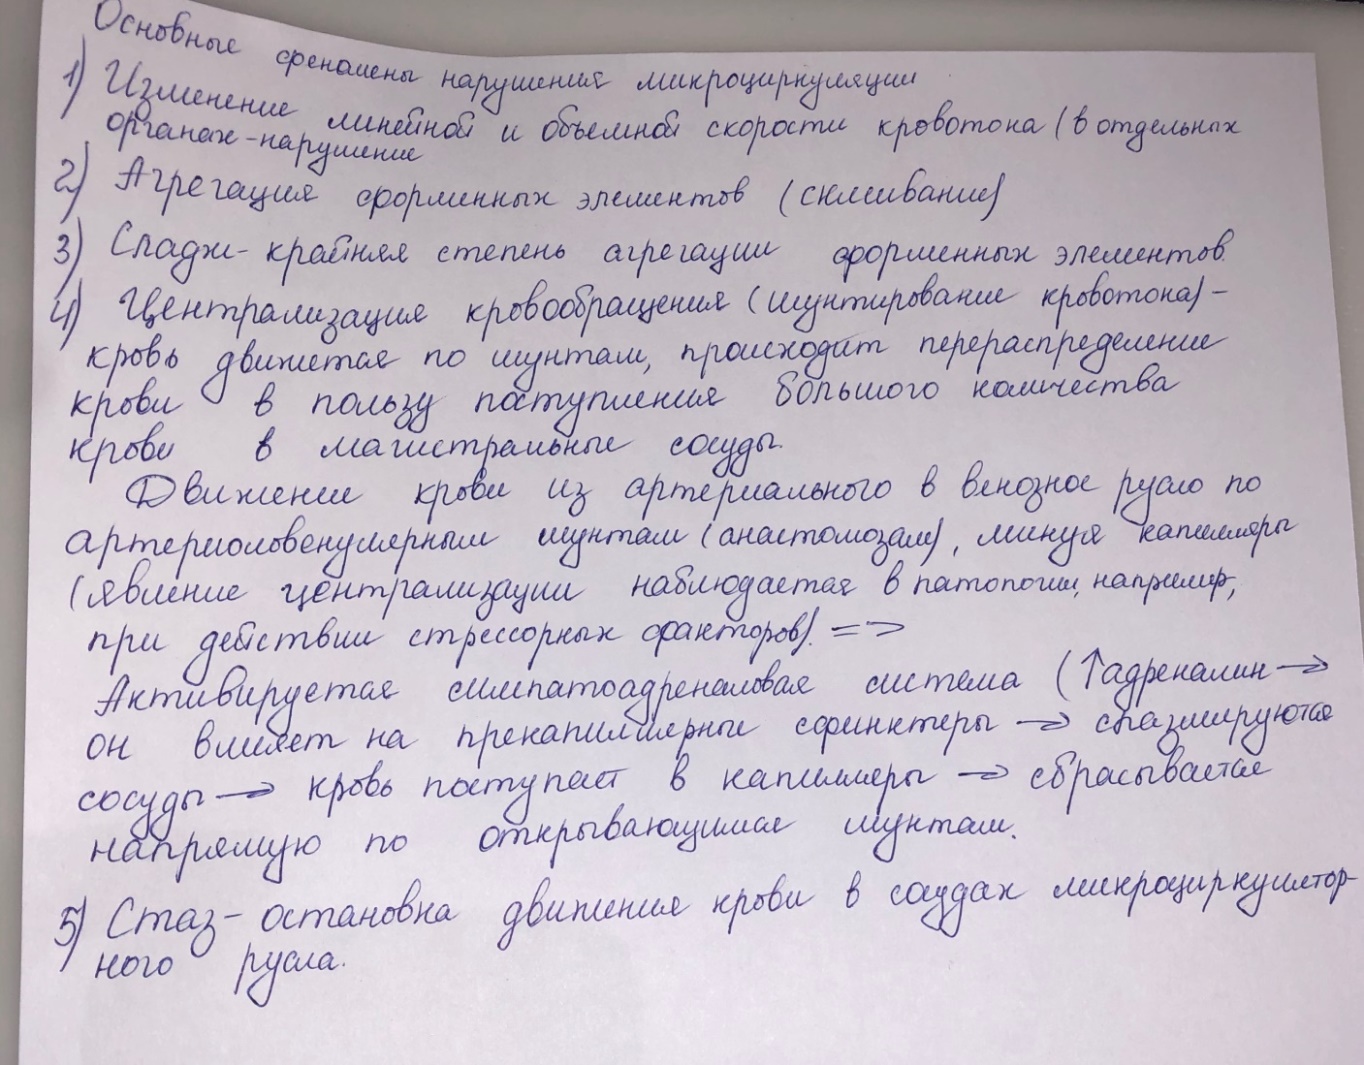 Основные феномены нарушения микроциркуляции
1) Изменение линейной и объемной скорости кровотока (в отдельных
органах - нарушение
2) Агрегация форменных элементов (склеивание)
3) Сладж - крайняя степень агрегации форменных элементов.
4) Централизация кровообращения (шунтирование кровотока) -
кровь движется по шунтам, происходит перераспределение
крови в пользу поступления большого количества
крови в магистральные сосуды.
Движение крови из артериального в венозное русло по
артериоловенулярным шунтам (анастомозам), минуя капилляры
(явление централизации наблюдается в патологии, например,
при действии стрессорных факторов). =>
Активируется симпатоадреналовая система (↑адреналин →
он влияет на прекапиллярные сфинктеры → спазмируются
сосуды → кровь поступает в капилляры → сбрасывается
напрямую по открывающимся шунтам.
5) Стаз - остановка движения крови в сосудах микроциркулятор-
ного русла.